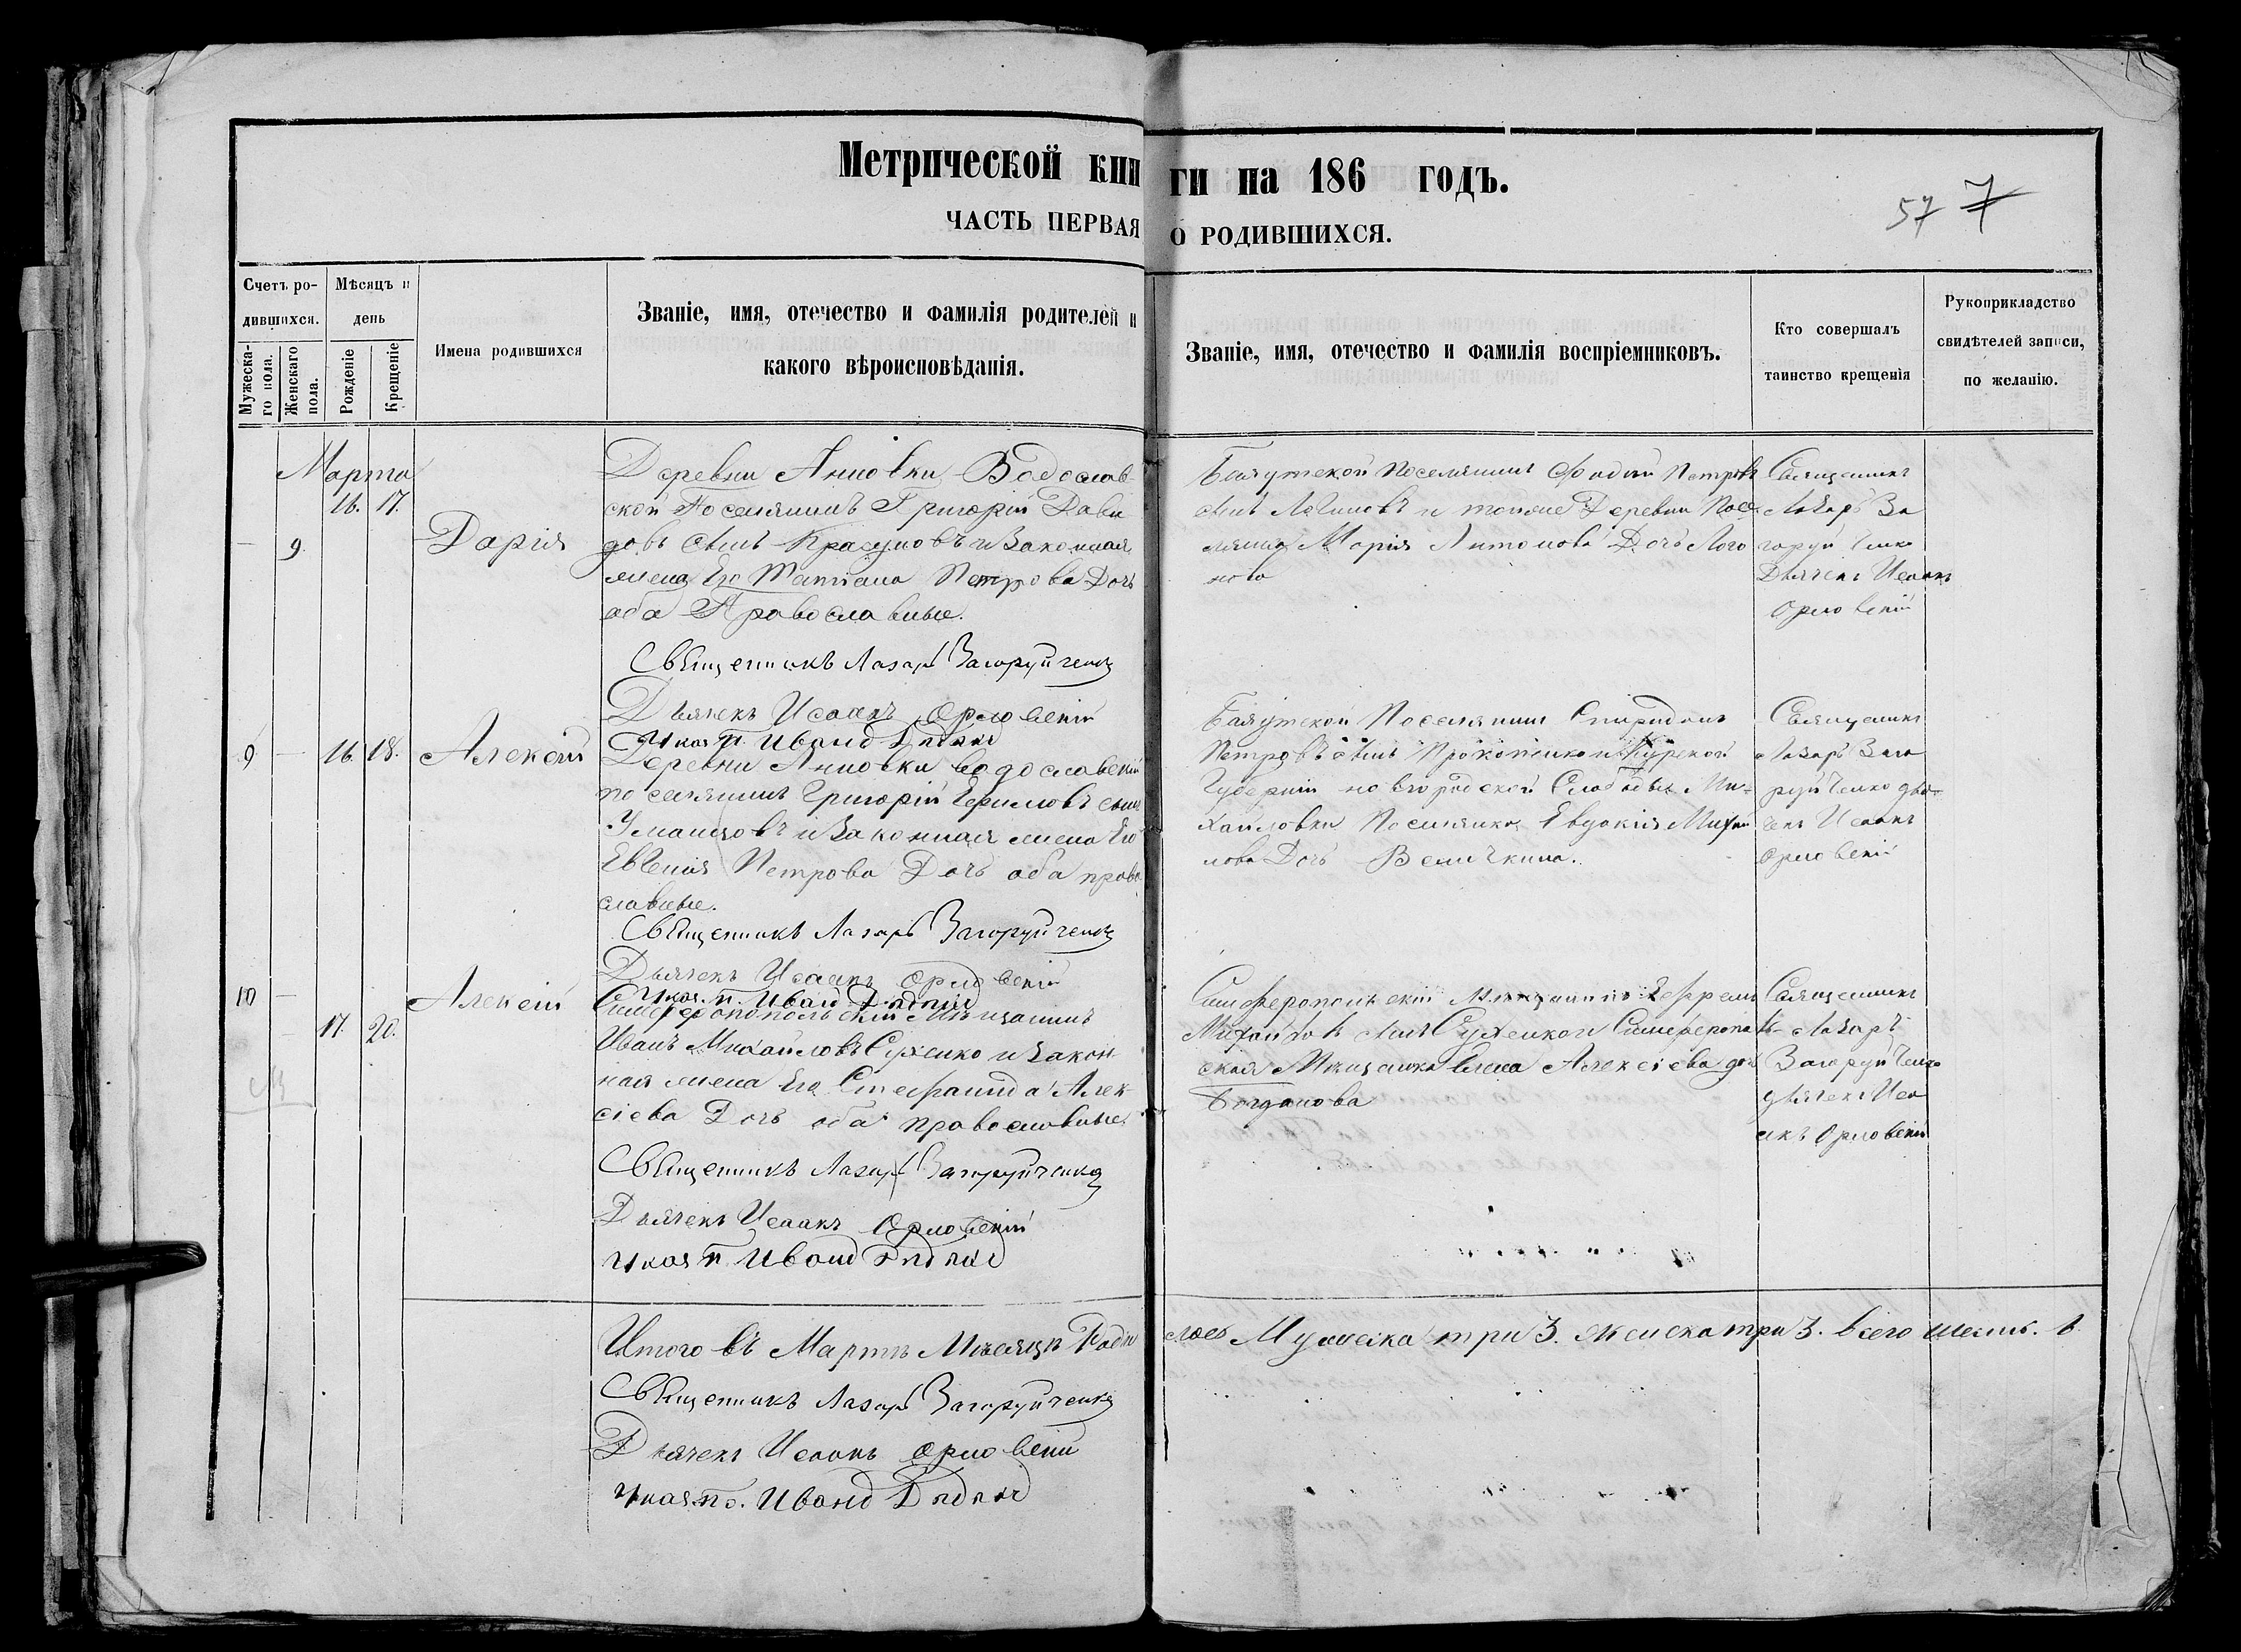 Метрической книги на 186 годъ.
ЧАСТЬ ПЕРВАЯ О РОДИВШИХСЯ.
57 7
Счетъ родившихся.
Мужескаго пола.
Женскаго пола.
Мѣсяцъ и день
Рожденіе
Крещеніе
Имена родившихся
Званіе, имя, отечество и фамилія родителей и
какого вѣроисповѣданія.
Званіе, имя, отечество и фамилія воспріемниковъ.
Кто совершалъ
таинство крещенія
Рукоприкладство
свидѣтелей записи,
по желанію.
Марта
9 16. 17.
Дарія
Деревни Анновки Водослав
ской Поселянинъ Григорій Дави
довъ сынъ Красуновъ и Законная
жена Его Татіана Петрова Дочь
оба Православные.
Священникъ Лазарь Загоруйченко
Дьячекъ Исаакъ Орловскій
Иванъ
Поселянинъ Петровъ
сынъ и тойже Деревни Посе
лянка Марія Антонова Дочь Лого
нова
Священникъ
Лазарь За
горуйченко
Дьячекъ Исаакъ
Орловскій
9 — 16. 18.
Алексѣй
Деревни Анновки Водославской
поселянинъ Григорій Ефимовъ сынъ
Уманцовъ и Законная жена Его
Евгенія Петрова Дочь оба право
славные.
Священникъ Лазарь Загоруйченко
Дьячекъ Исаакъ Орловскій
Иванъ
Поселянинъ Спиридонъ
Петровъ сынъ Прокопенко и Курской
Губерніи Слободы Ми-
хайловки Поселянка Евдокія Михай
лова Дочь Величкина.
Священникъ
Лазарь Заго
руйченко дья
чекъ Исаакъ
Орловскій
10 — 17. 20.
Алексій
Симферопольскій Мѣщанинъ
Иванъ Михайловъ Сухенко и закон
ная жена Его Стефанида Алек
сіева Дочь оба православные
Священникъ Лазарь Загоруйченко
Дьячекъ Исаакъ Орловскій
Иванъ
Симферопольскій Мѣщанинъ Ефремъ
Михайловъ сынъ Сухенко и Симферополь
ская Мѣщанка Елена Алексіева дочь
Богданова
Священникъ
Лазарь
Загоруйченко
дьячекъ Иса
акъ Орловскій
Итого въ Мартѣ Мѣсяцѣ Родилось Мужеска три 3. Женска три 3. всего шесть. 6.
Священникъ Лазарь Загоруйченко
Дьячекъ Исаакъ Орловскій
Иванъ